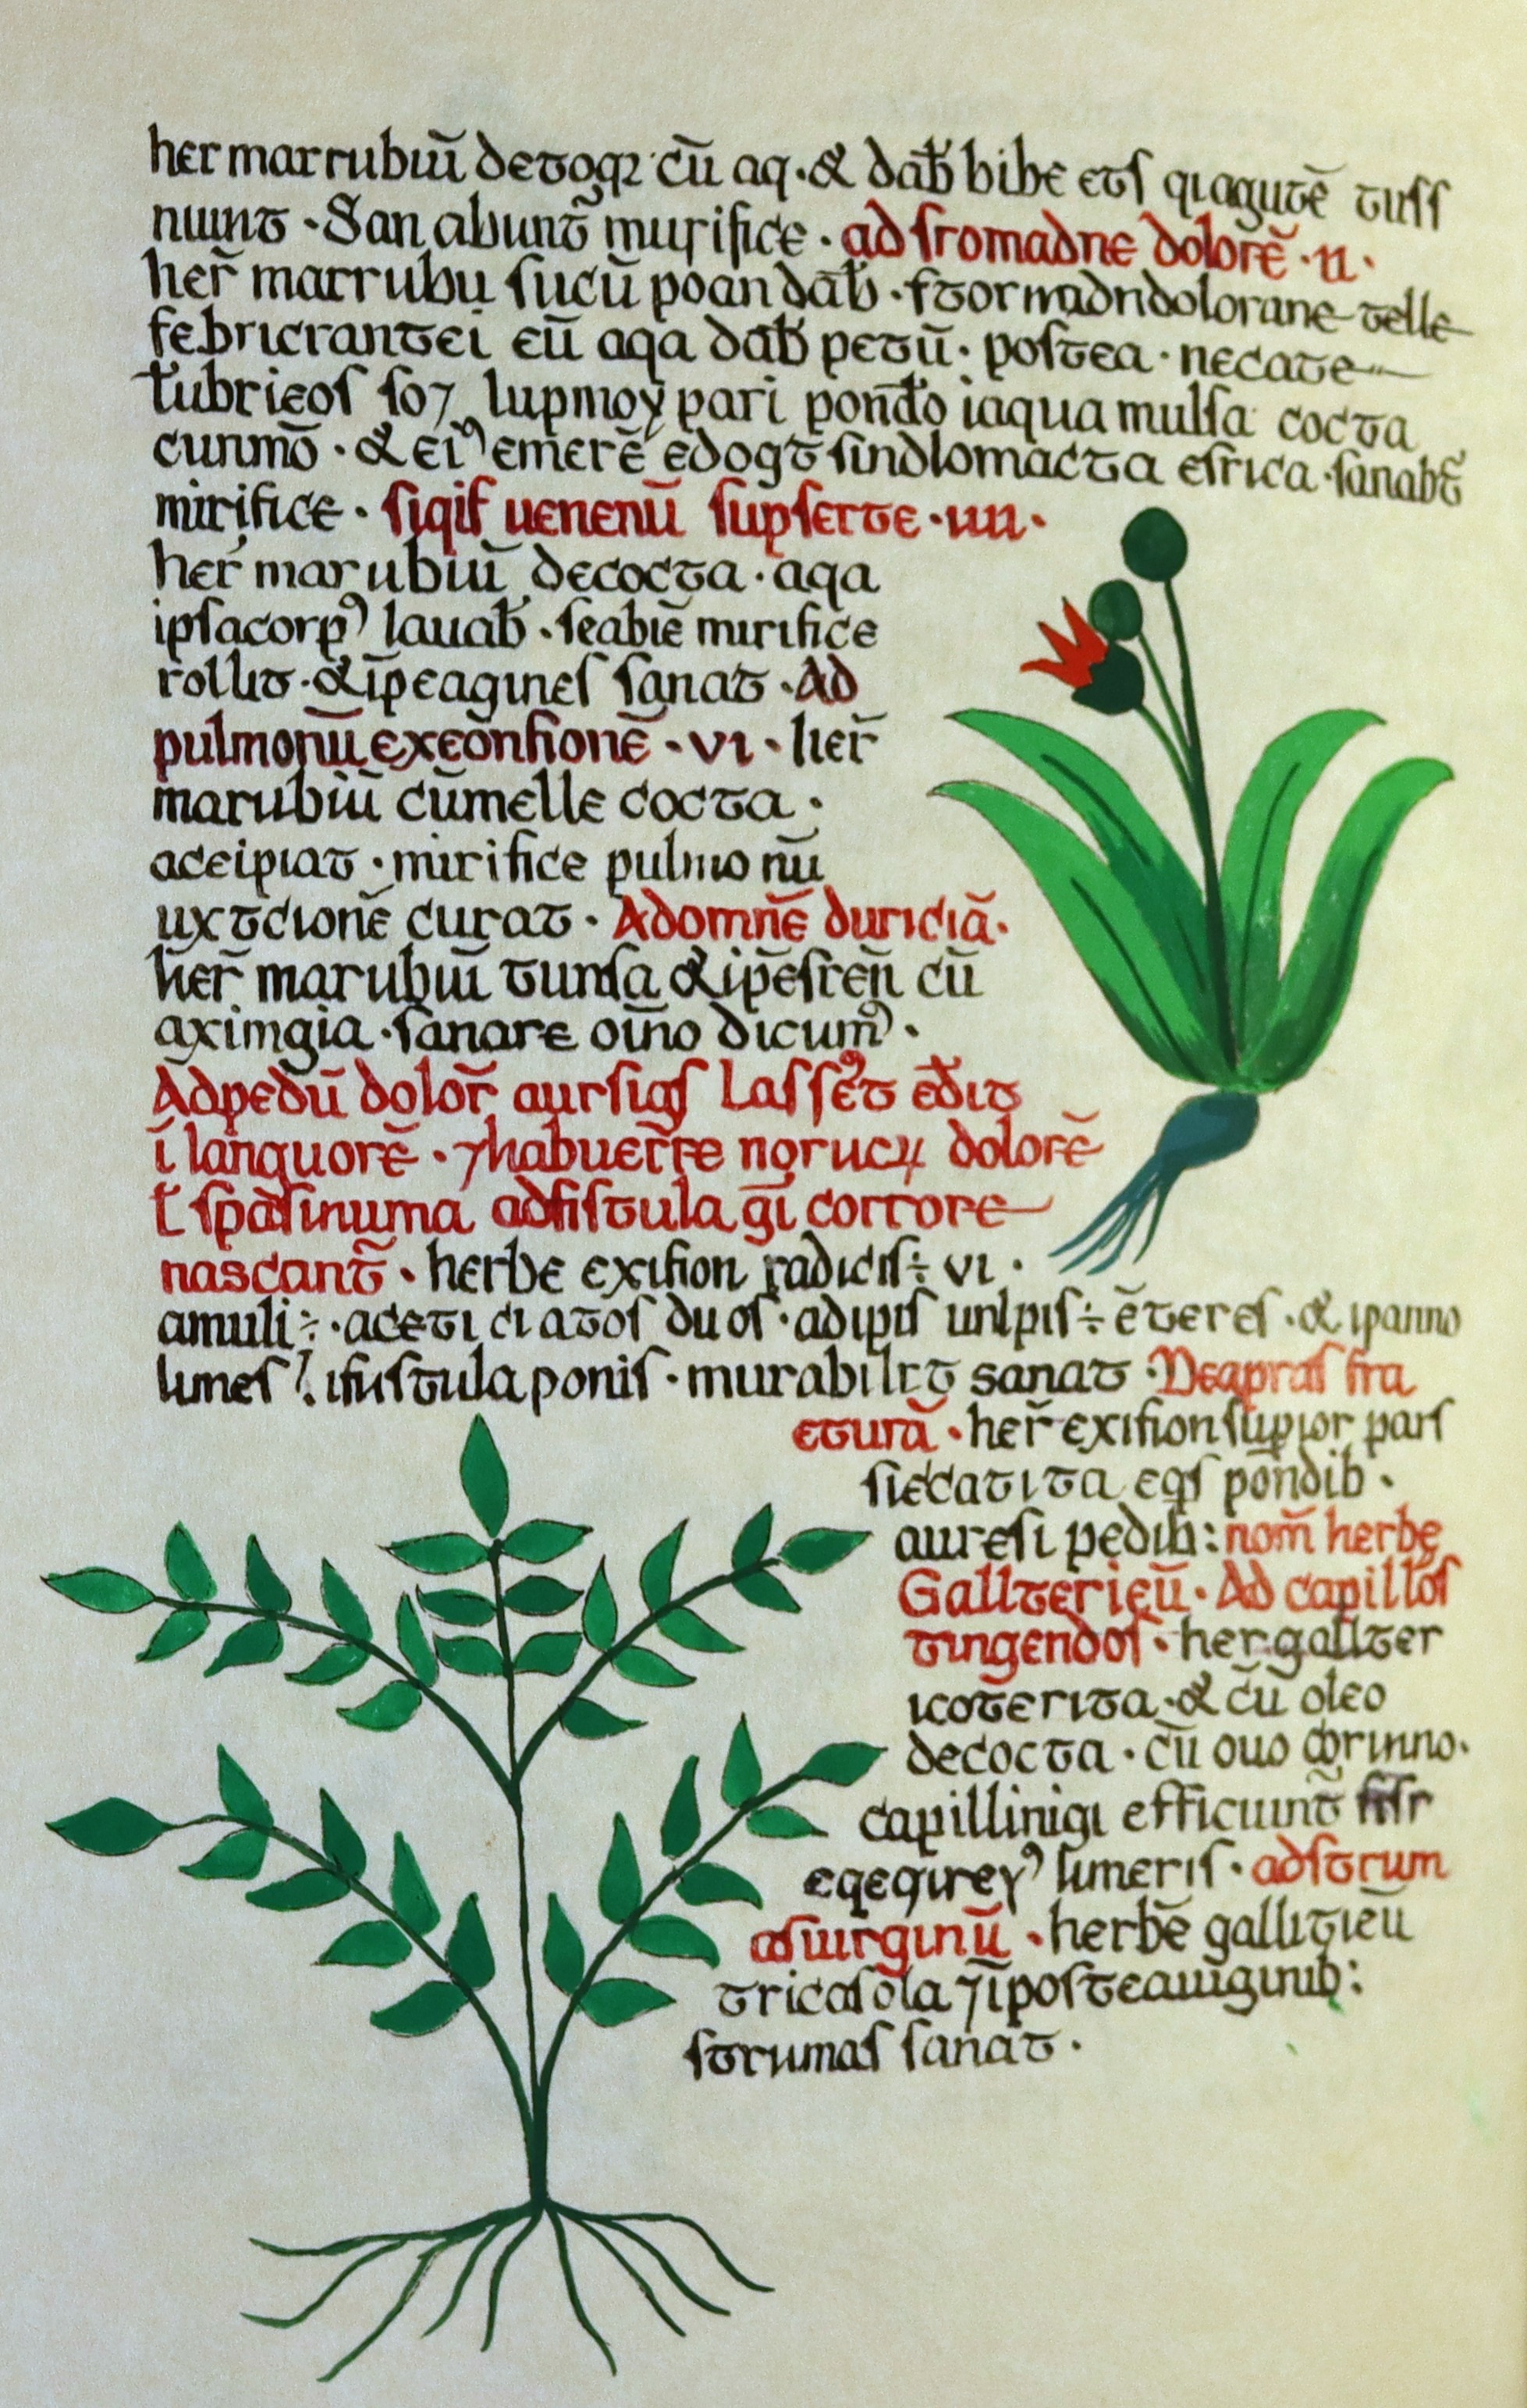 her marrubiū decoqꝫ cū aq. & dab̄ bibe ets qi agutē tuss
niunt · San abunt̄ mirifice · ad stomadne dolorē · ii ·
her̄ marrubii sucū poandab̄ · stormadndolorane telle
febricrantei cū aqa dab̄ petū · postea · necate
lubricos so⁊ lupinoꝝ pari pondo iaqua mulsa cocta
cunmō · & eiꝰ emerē edoqt̄ sindlomacta esrica · sanabt̄
mirifice · siqis uenenū supserte · iiii ·
her̄ marubiū decocta · aqa
ipsacorpꝰ lauab̄ · scabiē mirifice
tollit · & īpeagines sanat · Ad
pulmonū exeōnfionē · vi · her̄
marubiū cūmelle cocta ·
accipiat · mirifice pulmo nū
uxtcionē curat · Adomnē duriciā ·
her̄ marubiū tunsa & ipēsrēn cū
aximgia · sanare oīno dicumꝰ ·
Adpedū dolor̄ aur siqs Lassꝰet ēdit
ī languorē · ⁊ habuerr̄e dolorē
adfistula qī corrore
nascant̄ · herbe exifion radicis ÷ vi ·
amuli ÷ · aceti ciatos duos · adipis unlpis ÷ ēteres · & ipanno
lines ifistula ponis · murabilrt sanat · Neapras fra
cturā · her̄ exifion supior pars
siccatita eqs pōndib ·
auresi pedib : nom̄ herbe
Galltericū · Ad capillos
tingendos · her gallter
icoterita · & cū oleo
decocta · cū ouo corūino ·
capillinigi efficiunt̄
limeris · adstrum
asuirginū · herbē galliticū
tricasola ⁊ īposteauiginib :
strumas sanat ·